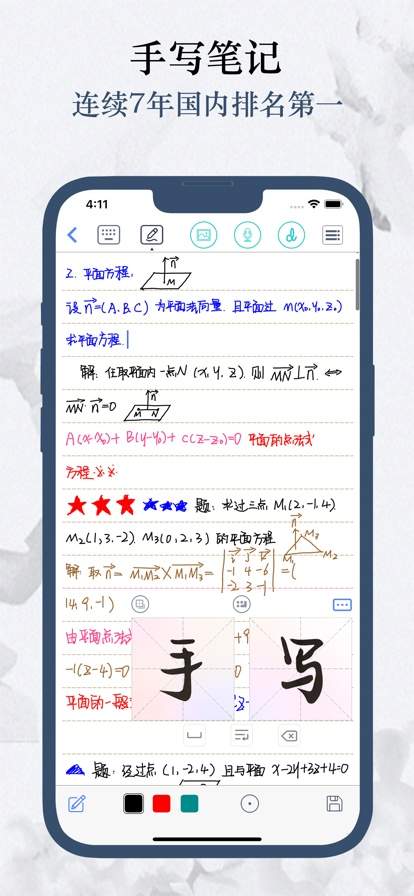 手写笔记
连续7年国内排名第一
4:11
2. 平面方程.
n
M
设 n=(A.B.C) 为平面法向量. 且平面过 M(x₀,y₀,z₀)
求平面方程.
解: 任取平面内一点N (x,y,z). 则 MN⊥n. ⇔
MN·n=0
n
M N
A(x-x₀)+B(y-y₀)+C(z-z₀)=0 平面的点法式
方程
★★★ ★★★ 题: 求过三点 M₁(2,-1,4)
M₂(1,3,-2). M₃(0,2,3) 的平面方程
n
M₃
M₁
M₂
解: 取 n= M₁M₂×M₁M₃= | i j k |
| -1 4 -6 | =(
| -2 3 -1 |
14,9,-1)
由平面点法式
+9
-1(z-4)=0
0
平面的一般
z-
手写
题: 经过点 (1,-2,4) 且与平面 x-2y+3z+4=0